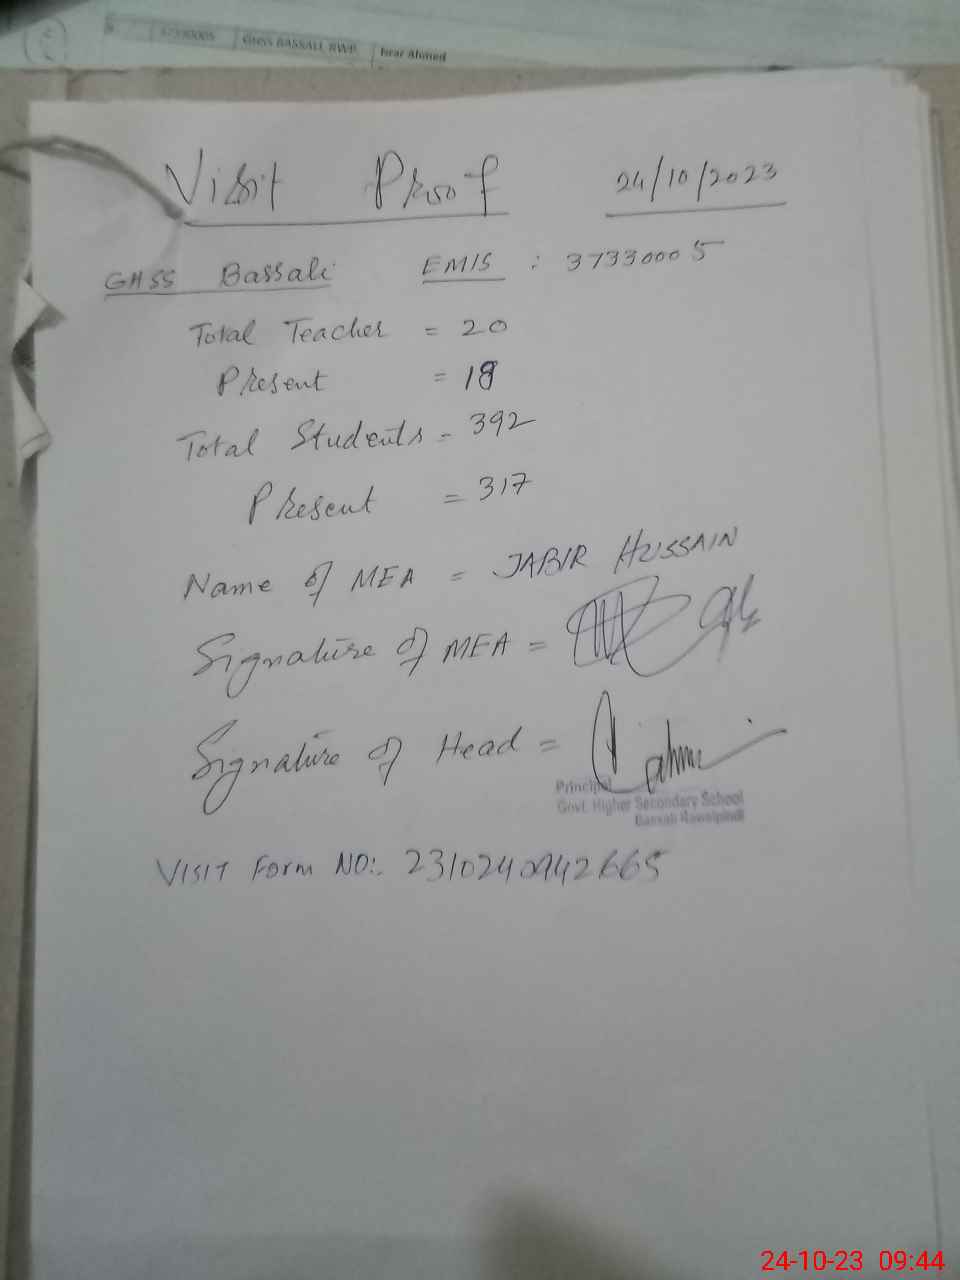 37330005 GHSS BASSALI, RWP. Israr Ahmed
Visit Proof 24/10/2023
GHSS Bassali EMIS : 37330005
Total Teacher = 20
Present = 18
Total Students = 392
Present = 317
Name of MEA = JABIR HUSSAIN
Signature of MEA =
Signature of Head =
Principal
Govt. Higher Secondary School
Bassali Rawalpindi
VISIT Form NO:. 2310240942665
24-10-23 09:44